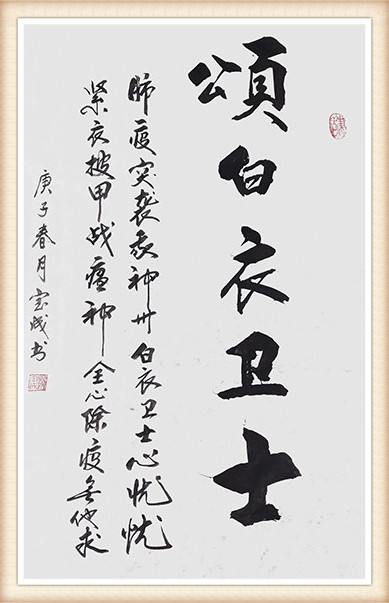 頌白衣卫士
肺疫突袭我神州白衣卫士心忧忧
紧衣披甲战瘟神全心除疫無他求
庚子春月宝成书